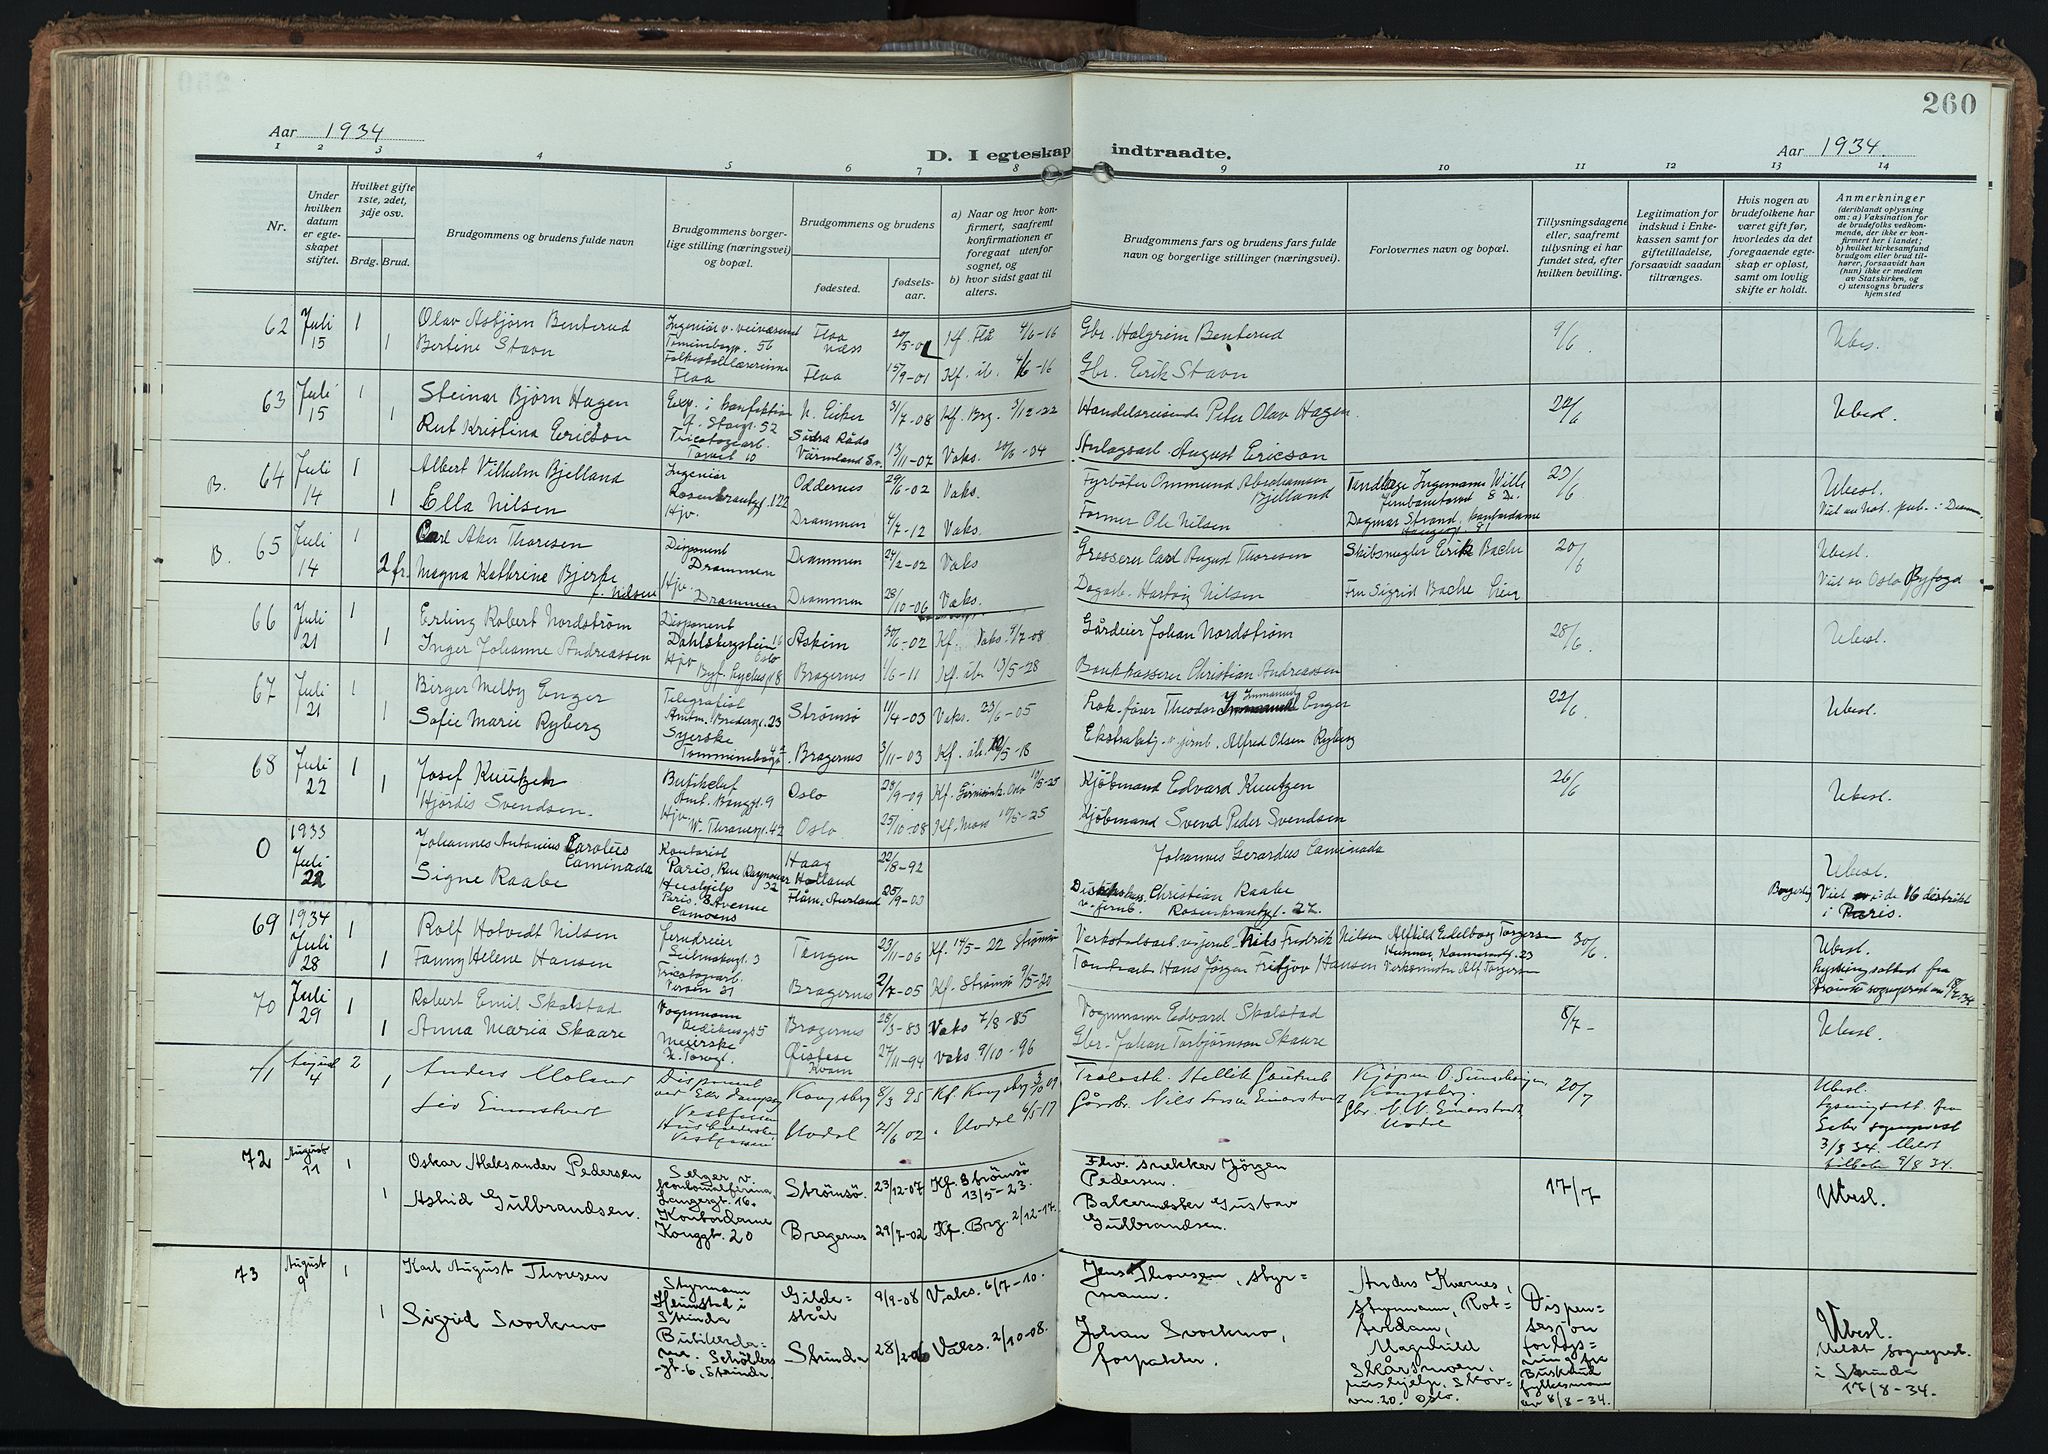 260
Aar 1934
D. I egteskap indtraadte.
Aar 1934.
1 2 3 4 5 6 7 8 9 10 11 12 13 14
Nr.
Under hvilken datum er egteskapet stiftet.
Hvilket gifte 1ste, 2det, 3dje osv.
Brdg. Brud.
Brudgommens og brudens fulde navn
Brudgommens borgerlige stilling (næringsvei) og bopæl.
Brudgommens og brudens
fødested.
fødselsaar.
a) Naar og hvor konfirmert, saafremt konfirmationen er foregaat utenfor sognet, og
b) hvor sidst gaat til alters.
Brudgommens fars og brudens fars fulde navn og borgerlige stillinger (næringsvei).
Forlovernes navn og bopæl.
Tillysningsdagene eller, saafremt tillysning ei har fundet sted, efter hvilken bevilling.
Legitimation for indskud i Enkekassen samt for giftetilladelse, forsaavidt saadan tiltrænges.
Hvis nogen av brudefolkene har været gift før, hvorledes da det foregaaende egteskap er opløst, samt om lovlig skifte er holdt.
Anmerkninger
(deriblandt oplysning om: a) Vaksination for de brudefolks vedkommende, der ikke er konfirmert her i landet; b) hvilket kirkesamfund brudgom eller brud tilhører, forsaavidt han (hun) ikke er medlem av Statskirken, og c) utensogns bruders hjemsted
62 Juli 15 1 Olav Asbjørn Benterud Ingeniør v. veivæsenet Flaa Næss 20/5-01 Kf. Flå 4/6-16 Gbr. Halgrim Benterud 9/6 Ubesl.
1 Bertine Stavn Folkeskolelærerinne Flaa Flaa 15/9-01 Kf. ib. 4/6-16 Gbr. Erik Stavn
63 Juli 15 1 Steinar Bjørn Hagen Exp. i konfektion 52 N. Eiker 3/7-08 Kf. Brg. 3/12-22 Handelsreisende Peter Olav Hagen 22/6 Ubesl.
1 Rut Kristina Ericson Tricotagearb. 10 Södra Råds Värmland Sv. 13/11-07 Vaks. Anlagsarb August Ericson
B. 64 Juli 14 1 Albert Vilhelm Bjelland Ingeniør Rosenkrantzgt. 122 Oddernes 29/6-02 Vaks. Fyrbøter Ommund Abrahamsen Bjelland Tandlæge Ingemann Wille 23/6 Ubesl.
1 Ella Nilsen Hjv. Drammen 4/7-12 Vaks. Former Ole Nilsen Dagmar Strand, kontordame Viet av Not. pub. i Dramm.
B. 65 Juli 14 1 Carl Aker Thoresen Disponent Drammen Drammen 24/2-02 Vaks Gresserer Carl August Thoresen Skibsmegler Erik Bache 20/6 Ubesl.
2 fr. Magna Kathrine Bjerke f. Nilsen Hjv. Drammen Drammen 28/10-06 Vaks. Dagarb. Hartvig Nilsen Fru Sigrid Bache Lier Viet av Oslo Byfogd
66 Juli 21 1 Erling Robert Nordstrøm Disponent Dahlsbergstein 16 Oslo Askim 30/6-02 Kf. Vaks. 4/7-08 Gårdeier Johan Nordstrøm 28/6 Ubesl.
1 Inger Johanne Andreassen Hjv Bragernes 1/6-11 Kf. ib. 13/5-28 Bankkasserer Christian Andreassen
67 Juli 21 1 Birger Melby Enger Telegrafist 23 Strømsø 11/4-03 Vaks. 23/6-05 Lok.fører Theodor Immanuel Enger 22/6 Ubesl.
1 Sofie Marie Ryberg Syerske Bragernes 3/11-03 Kf. ib. 10/5-18 Ekstrabetj. v. jernb. Alfred Olsen Ryberg
68 Juli 22 1 Josef Knutzen Butikchef Amt. Banggt. 9 Oslo 28/9-09 Kf. Oslo 10/5-25 Kjøbmand Edvard Knutzen 26/6 Ubesl.
1 Hjördis Svendsen. Hjv W. Thranesgt. 42 Oslo. 25/10-08 Kf. Moss 10/5-25 Kjøbmand Svend Peder Svendsen
0 1933 Juli 22 Johannes Antonius Carolus Caminada Kontorist Paris, Rue Raynouar 32 Haag Holland 22/8-92 Johannes Gerardus Caminada Ubesl.
Signe Raabe Hushjelp Paris. 8 Avenue Camoens Flåm, Aurland 25/9-03 Christian Raabe v. jernb. Rosenkrantzgt. 27. Borgerlig Viet i de 16 distrikt i Paris.
69 1934 Juli 28 1 Rolf Hotvedt Nilsen Jerndreier 3 Tangen 23/11-06 Kf. 14/5-22 Strømsø Verkstedsarb. v. jernb. Nils Fredrik Nilsen Alfhild Edelborg Torgersen 30/6 Ubesl.
1 Fanny Helene Hansen Tricotagearb. 31 Bragernes 2/7-05 Kf. Strømsø 9/5-20 Tomtearb. Hans Jørgen Fridtjov Hansen Verksmester Alf Torgersen Lysningsattest fra Strømsø sogneprest av 18/7 34
70 Juli 29 1 Robert Emil Skalstad Vognmann 5 Bragernes 28/3-83 Vaks 7/8-85 Vognmann Edvard Skalstad 8/7- Ubesl.
1 Anna Maria Skaare Meierske Øistese Kvam 27/11-94 Vaks 9/10-96 Gbr. Johan Torbjørnson Skaare
71 August 4 2 Anders Moland Disponent Vestfossen Kongsberg 8/3 95 Kf Kongsberg 3/10 09 Kjøpm. O. Kongsberg. 20/7 Ubesl.
1 Liv Einarstvedt Vestfossen Uvdal 21/6 02 Uvdal 6/5-17 Gårdbr. Nils Einarstvedt Gbr. N. N. Einarstvedt Uvdal Lysningsatt. fra Eiker sogneprest 3/8 34. Meldt tilbake 9/8 34.
72 August 11 1 Oskar Aleksander Pedersen Selger v. kolonialfirma, Langesgt. 16. Strømsø. 23/12-07 Kf. Strømsø 13/5-23. Fhv. snekker Jörgen Pedersen. 17/7 Ubesl.
1 Astrid Gulbrandsen. Kontordame Konggt. 20 Bragernes 29/7-02 Kf. Brg. 2/12-17. Bakermester Gustav Gulbrandsen.
73 August 9 1 Karl August Thoresen Styrmann Heimstad i Strinda Gildeskål 9/9-08 Vaks. 6/7-10. Jens Thoresen, styrmann. Anders Kvernes, styrmann, Rotterdam, Dispensasjon for lysning fra Buskerud fylkesmann av 8/8-34. Ubesl.
1 Sigrid Svorkmo Butikkdame. Schöllersgt. 6, Strinda. Strinda 28/2-06 Vaks. 2/10-08. Johan Svorkmo, forpakter. Magnhild Skårsmoen, hushjelp, Skovvn. 20. Oslo. Meldt sogneprest. i Strinda 17/8-34.